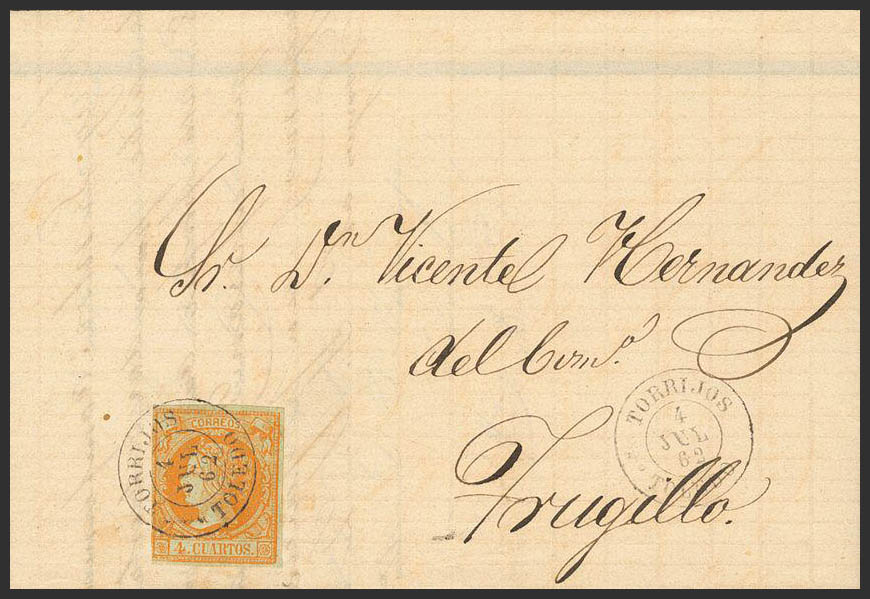 Sr. Dn. Vicente Hernandez
del Comº.
Trugillo.
TORRIJOS
4
JUL
62
TOLEDO
CORREOS
4 CUARTOS.
TORRIJOS
4
JUL
62
TOLEDO